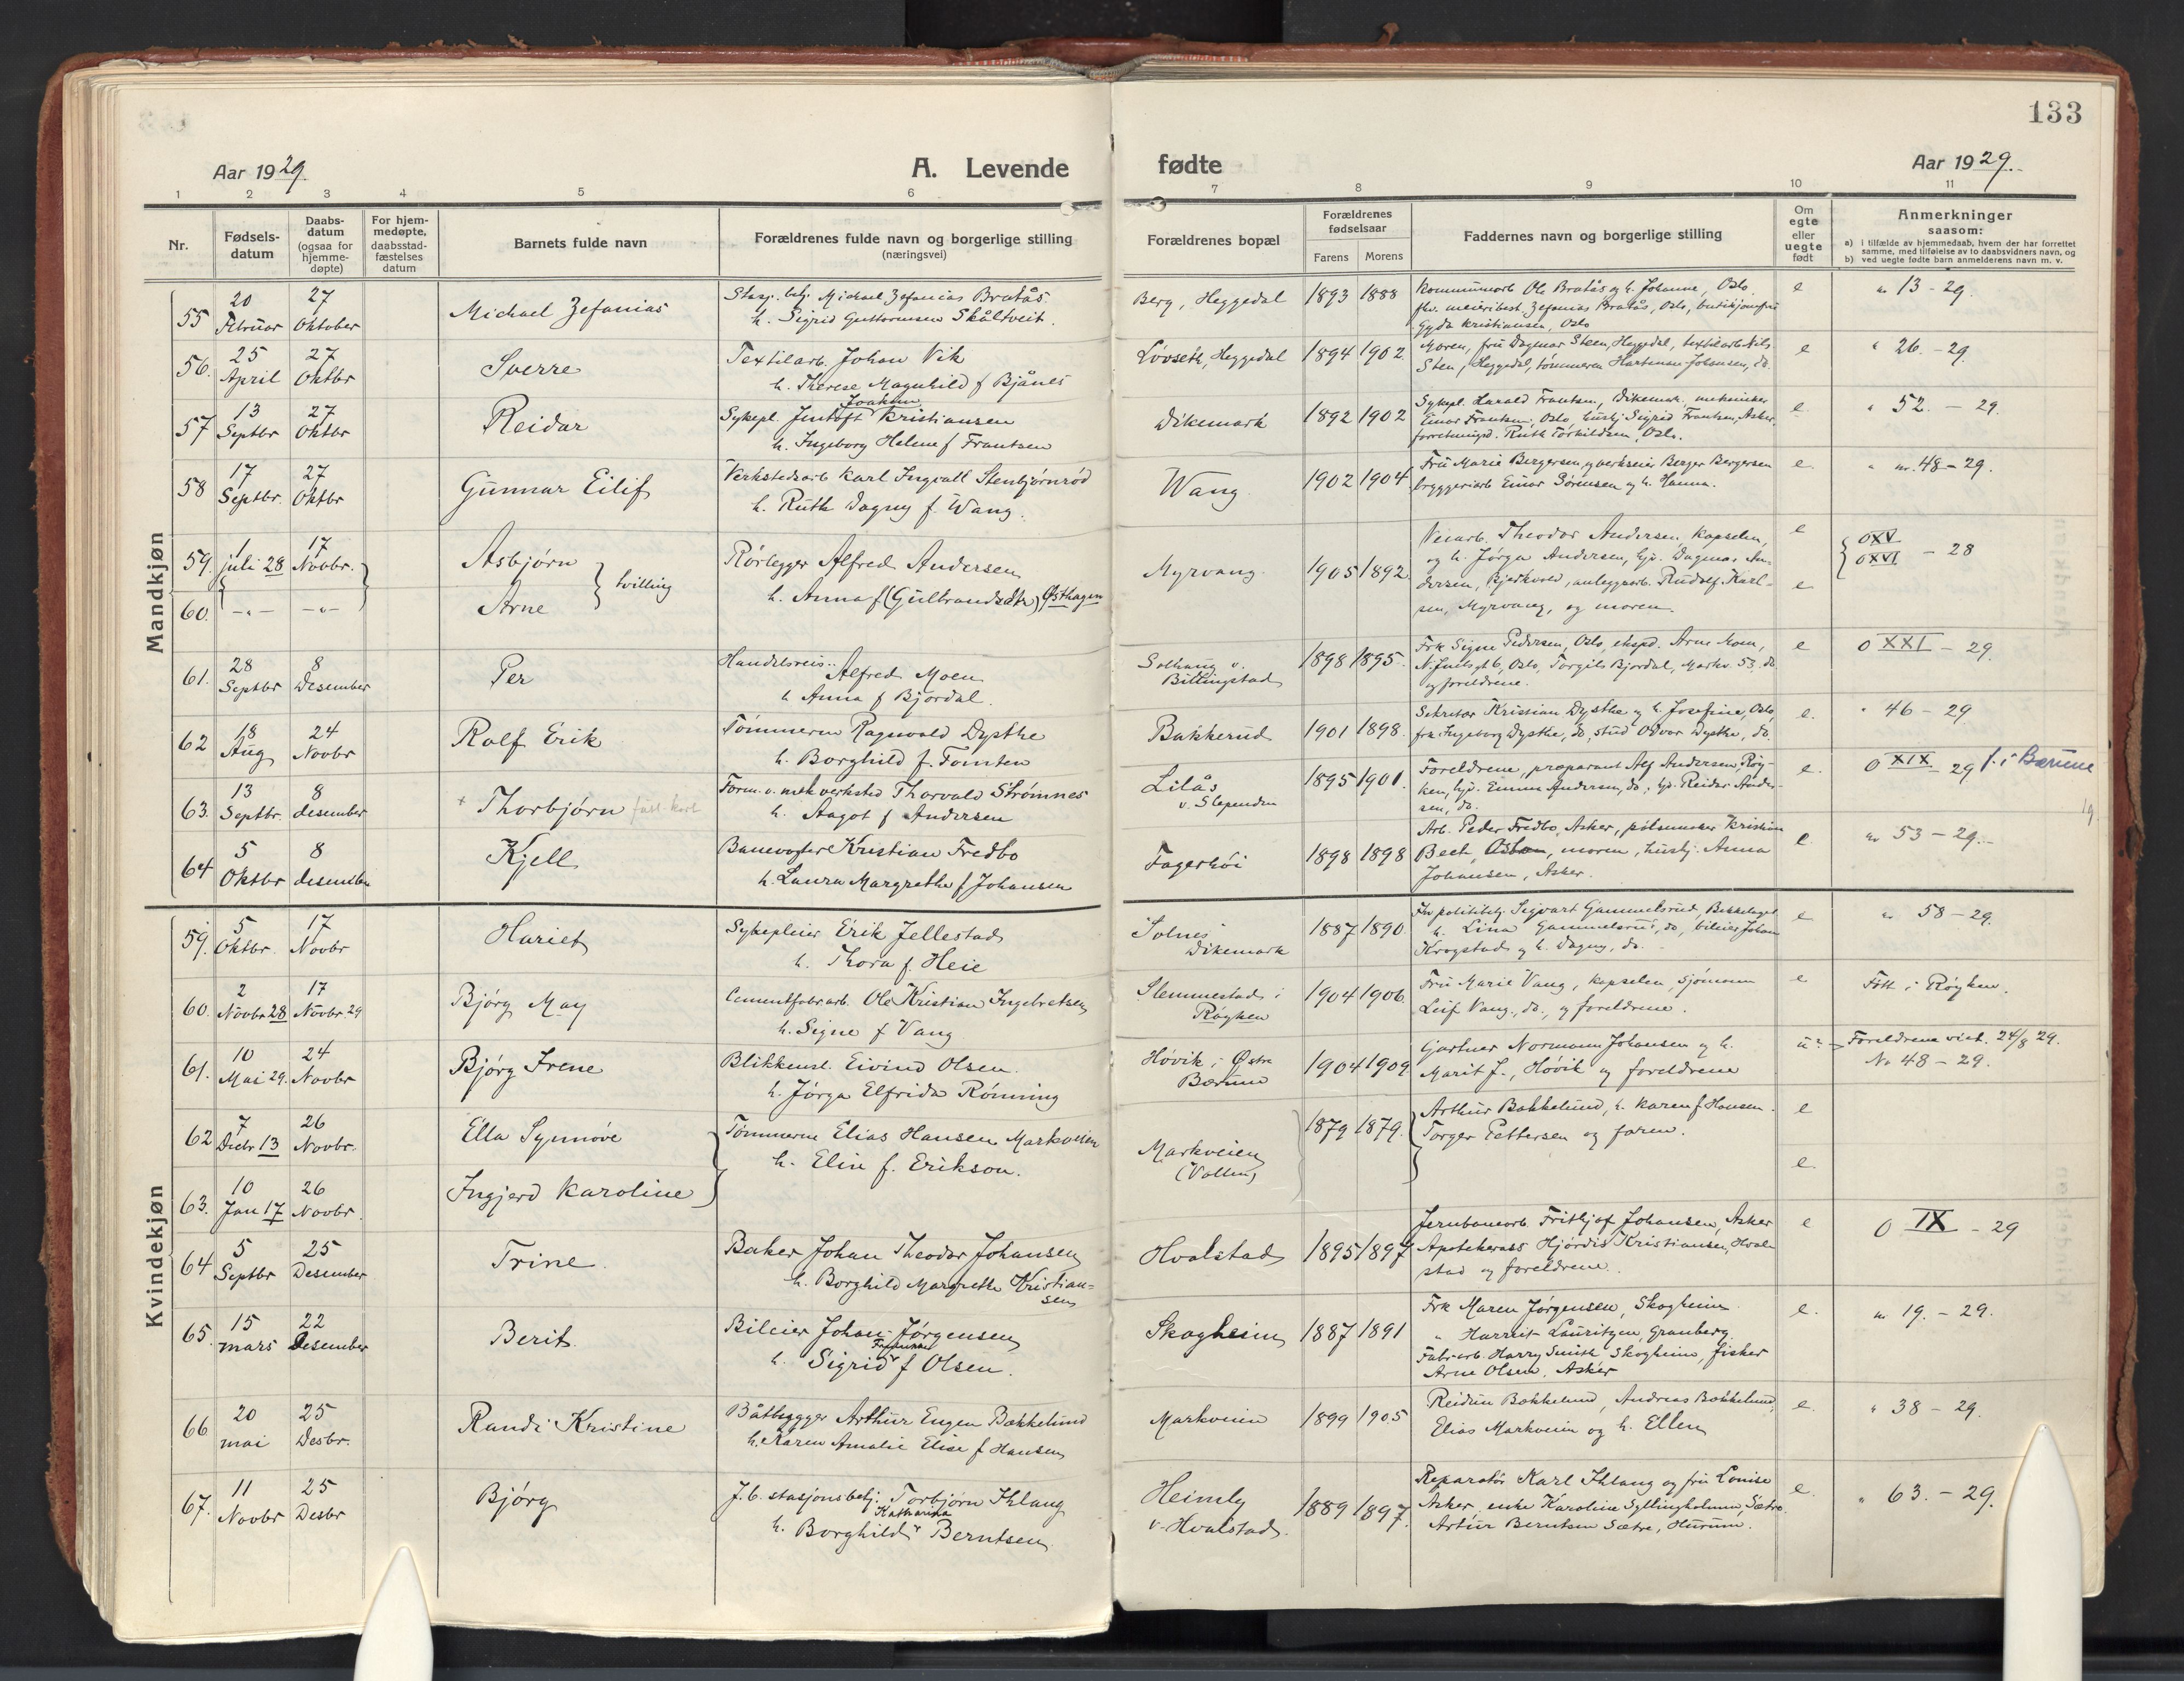 133
Aar 1929.
A. Levende
fødte
Aar 1929.
1 2 3 4 5 6 7 8 9 10 11
Nr.
Fødsels-
datum
Daabs-
datum
(ogsaa for
hjemme-
døpte)
For hjem-
medøpte,
daabsstad-
fæstelses
datum
Barnets fulde navn
Forældrenes fulde navn og borgerlige stilling
(næringsvei)
Forældrenes bopæl
Forældrenes
fødselsaar
Farens Morens
Faddernes navn og borgerlige stilling
Om
egte
eller
uegte
født
Anmerkninger
saasom:
a) i tilfælde av hjemmedaab, hvem der har forrettet
samme, med tilføielse av to daabsvidners navn, og
b) ved uegte fødte barn anmelderens navn m. v.
Mandkjøn
55 20 Februar 27 Oktober
Michael Zefanias
Stasj. betj. Michael Zefanias Bratås
h. Sigrid Guttormsen Skåltveit.
Berg, Heggedal
1893 1888
Kommunearb Ole Bratås og h. Johanne, Oslo,
fhv. meieribest. Zefanias Bratås, Oslo, butikjomfru
Gyda Kristiansen, Oslo
e
nr 13 - 29.
56. 25 April 27 Oktbr
Sverre
Textilarb. Johan Vik
h. Therese Magnhild f Bjånes
Løvseth, Heggedal
1894 1902.
Moren, frü Dagmar Steen, Heggedal, textilarb Nils
Sten, Heggedal, tømmerm Hartman Johansen, do.
e
" 26. - 29.
57 13 Septbr 27 Oktbr
Reidar
Joakim
Sykepl. Jentoft Kristiansen
h. Ingeborg Helene f Frantsen
Dikemark
1892 1902
Sykepl. Harald Frantsen, Dikemark, mekaniker
Einar Frantsen, Oslo, hüstj Sigrid Frantsen, Asker,
forretningsd. Rüth Torkildsen, Oslo.
e
" 52. - 29.
58 17 Septbr. 27 Oktbr
Günnar Eilif
Verkstedsarb Karl Ingvall Stenbjørnrød
h. Rüth Dagny f. Wang.
Wang.
1902 1904
Frü Marie Bergersen, og verkseier Berger Bergersen
bryggeriarb Einar Sørensen og h. Hanna.
e
" nr. 48 - 29.
59. 1 juli 28 17 Novbr.
Asbjørn
60. -"- -"-
Arne
tvilling
Rørlegger Alfred Andersen
h. Anna f (Gülbrandsdtr) Østhagen
Myrvang.
1905 1892.
Veiarb. Theodor Andersen, Kapselen,
og h. Jørga Andersen, hj. Dagmar An-
dersen, Bjerkvold, anleggsarb. Rüdolf Karl-
sen, Myrvang, og moren.
e
e
OXV
OXVI - 28
61. 28 Septbr 8 Desember
Per
Handelsreis. Alfred Moen
h Anna f Bjordal.
Solhaug v.
Billingstad
1898 1895.
Frk Signe Pedersen, Oslo, ekspd. Arne Moen,
Torgils Bjordal, Markv. 53. do
og foreldrene.
e
O XXI - 29.
62 18 Aug 24 Novbr
Rolf Erik
Tømmerm Ragnvald Dysthe
h. Borghild f. Tomten
Bakkerüd
1901 1898.
Sekretær Kristian Dysthe og h. Josefine, Oslo,
frk. Ingeborg Dysthe, do, stud Odvar Dysthe, do.
e.
" 46 - 29
63. 13 Septbr. 8 desember
+ Thorbjørn
Form. v. mek verksted Thorvald Strømnes
h. Aagot f Andersen
Lilås
v. Slependen
1895 1901.
Foreldrene, preparant Alf Andersen, Røy-
ken, hj. Emma Andersen, do, hj. Reidar Ander-
sen, do.
e.
O XIX - 29 f. i Bærum
64 5 Oktbr 8 desember
Kjell
Banevogter Kristian Fredbo
h. Laura Margrethe f Johansen
Fagerhøi
1898 1898
Arb. Peder Fredbo, Asker, pølsemaker Kristian
Bech, Oslo, moren, hüstj. Anna
Johansen, Asker.
e
nr 53 - 29.-
Kvindekjøn
59. 5 Oktbr. 17 Novbr
Hariet
Sykepleier Erik Jellestad
h. Thora f. Heie
"Solnes"
Dikemark
1887 1890
Fhv politibetj. Sigvart Gammelsrud, Bekkelaget
h. Lina Gammelsrud, do, bileier Johan
Krogstad og h. Dagny, do.
e
nr 58 - 29.
60. 2 Novbr 28 17 Novbr 29
Bjørg May
Cementfabrarb. Ole Kristian Ingebretsen
h. Signe f Vang
Slemmestad i
Røyken
1904 1906.
Frü Marie Vang, Kapselen, Sjømann
Leif Vang, do., og foreldrene.
e
Født i Røyken.
61. 10 Mai 29. 24 Novbr
Bjørg Irene
Blikkensl. Eivind Olsen.
h. Jørga Elfrida Rønning
Høvik i Østre
Bærum
1904 1909
Gartner Normann Johansen og h.
Marit J., Høvik og foreldrene
ü?
Foreldrene viet 24/8 29.
Nr 48 - 29.
62 7 Decbr 13 26 Novbr.
Ella Synnøve
63. 10 Jan 17 26 Novbr.
Ingjerd Karoline
Tømmerm Elias Hansen Markveien
h. Elin f. Erikson.
Markveien
(Vollen)
1879 1879.
Arthür Bakkelund, h. Karen f Hansen.
Torger Pettersen og faren.
e
e.
64 5 Septbr 25 Desember
Trine
Baker Johan Theodor Johansen
h. Borghild Margrethe Kristian=
sen
Hvalstad
1895 1897
Jernbanearb. Frithjof Johansen, Asker
Apotekerass Hjørdis Kristiansen, Hval-
stad og foreldrene.
e
O IX - 29
65. 15 mars 22 Desember
Berit
Bileier Johan Jørgensen
h. Sigrid f Olsen.
Skogheim
1887 1891
Frk Maren Jørgensen, Skogheim.
" Harriet Lauritzen, Granberg.
Fabr arb. Harry Smith Skogheim, fisker
Arne Olsen, Asker
e.
nr 19. - 29.
66 20 mai 25 Desbr.
Randi Kristine
Båtbygger Arthür Eugen Bakkelünd
h. Karen Amalie Elise f Hansen
Markveien
1899 1905
Reidün Bakkelund, Andreas Bakkelund,
Elias Markveien og h. Ellen
e.
" 38 - 29.
67. 11 Novbr 25 Desbr
Bjørg
J.b. stasjonsbetj. Torbjørn Ihlang
Katharina
h. Borghild Berntsen
Heimly
v. Hvalstad.
1889 1897.
Reparatør Karl Ihlang og frü Louise
Asker, enke Karoline Syllingholmen, Sætre.
Artür Berntsen Sætre, Hürüm.
e.
" 63. - 29.